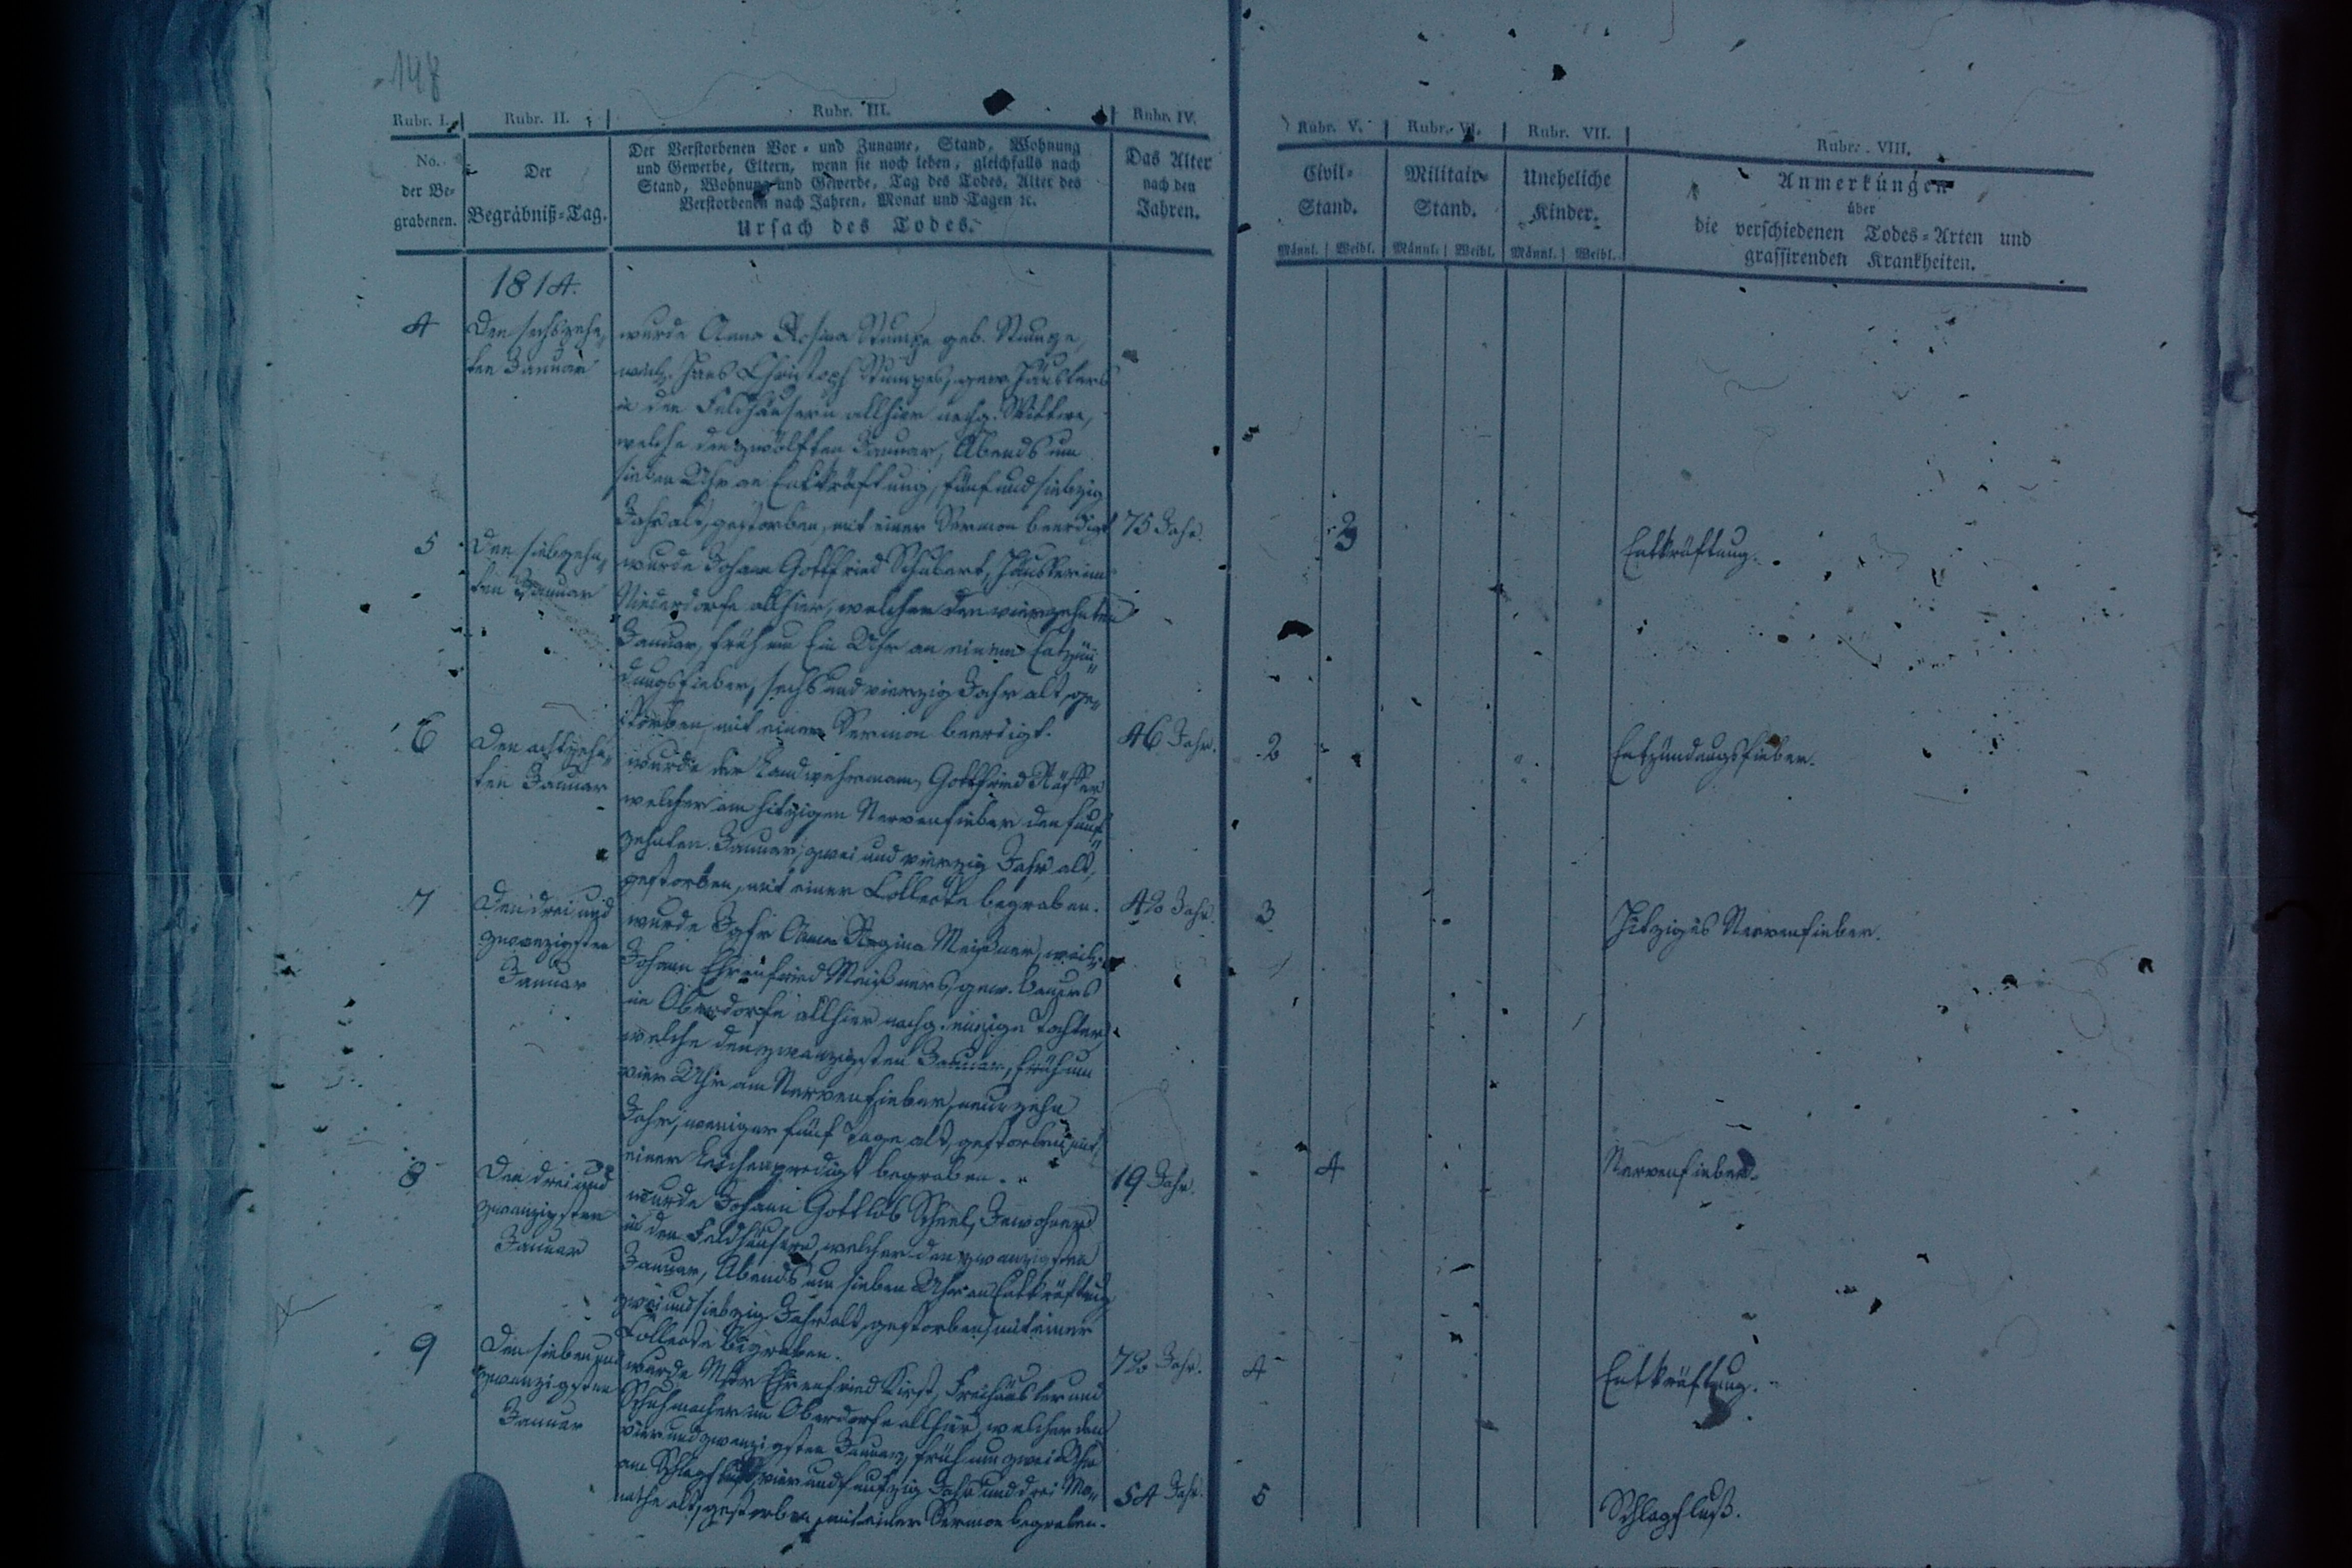 148
Rubr. I.
Rubr. II.
Rubr. III.
Rubr. IV.
Rubr. V.
Rubr. VI.
Rubr. VII.
Rubr. VIII.
No.
der Be-
grabenen.
Der
Begräbniß-Tag.
Der Verstorbenen Vor- und Zuname, Stand, Wohnung
und Gewerbe, Eltern, wenn sie noch leben, gleichfalls nach
Stand, Wohnung und Gewerbe, Tag des Todes, Alter des
Verstorbenen nach Jahren, Monat und Tagen ꝛc.
Ursach des Todes.
Das Alter
nach den
Jahren.
Civil-
Stand.
Militair-
Stand.
Uneheliche
Kinder.
Anmerkungen
über
die verschiedenen Todes-Arten und
grassirenden Krankheiten.
Männl. Weibl. Männl. Weibl. Männl. Weibl.
1814.
4
Den sechszehn-
ten Januar
wurde Anna Rosina Stumpe geb. Stumpe,
weil. Hans Christoph Stumpes, gew. Häuslers
in den Feldhäusern allhier nachg. Wittwe,
welche den zwölften Januar, Abends um
sieben Uhr an Entkräftung, fünf und siebzig
Jahr alt, gestorben, mit einer Sermon beerdigt
75 Jahr.
3
Entkräftung.
5
Den siebzehn-
ten Januar
wurde Johann Gottfried Schubert, Häusler im
Niederdorfe allhier, welcher den vierzehnten
Januar, früh um Ein Uhr an einem Entzün-
dungsfieber, sechs und vierzig Jahr alt, ge-
storben, mit einer Sermon beerdigt.
46 Jahr.
2
Entzündungsfieber.
6
Den achtzehn-
ten Januar
wurde der Landwehrmann, Gottfried
welcher am hitzigen Nervenfieber den funf-
zehnten Januar, zwei und vierzig Jahr alt,
gestorben, mit einer Collecte begraben.
42 Jahr.
3
Hitziges Nervenfieber.
7
Den drei und
zwanzigsten
Januar
wurde Jgfr Anna Regina Meißner, weil.
Johann Ehrenfried Meißners, gew. Bauers
im Oberdorfe allhier nachg. einzige Tochter,
welche den zwanzigsten Januar, früh um
vier Uhr am Nervenfieber, neunzehn
Jahr, weniger fünf Tage alt, gestorben, mit
einer Leichenpredigt begraben.
19 Jahr.
4
Nervenfieber.
8
Den drei und
zwanzigsten
Januar
wurde Johann Gottlob Scheel, Inwohner
in den Feldhäusern, welcher den zwanzigsten
Januar, Abends um sieben Uhr an Entkräftung
zwei und siebzig Jahr alt, gestorben, mit einer
Collecte begraben.
72 Jahr.
4
Entkräftung.
9
Den sieben und
zwanzigsten
Januar
wurde Mstr Ehrenfried Kirst, Freihäusler und
Schuhmacher im Oberdorfe allhier, welcher den
vier und zwanzigsten Januar, früh um zwei Uhr
am Schlagfluß, vier und funfzig Jahr und drei Mo-
nathe alt, gestorben, mit einer Sermon begraben.
54 Jahr.
5
Schlagfluß.